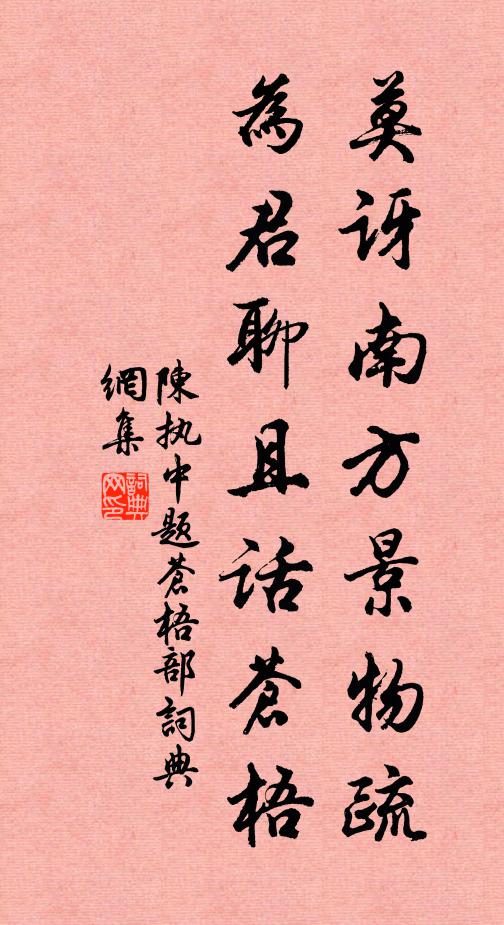 莫訝南方景物疏
為君聊且話蒼梧
陳执中题蒼梧部詞典
網集
詞典
网印